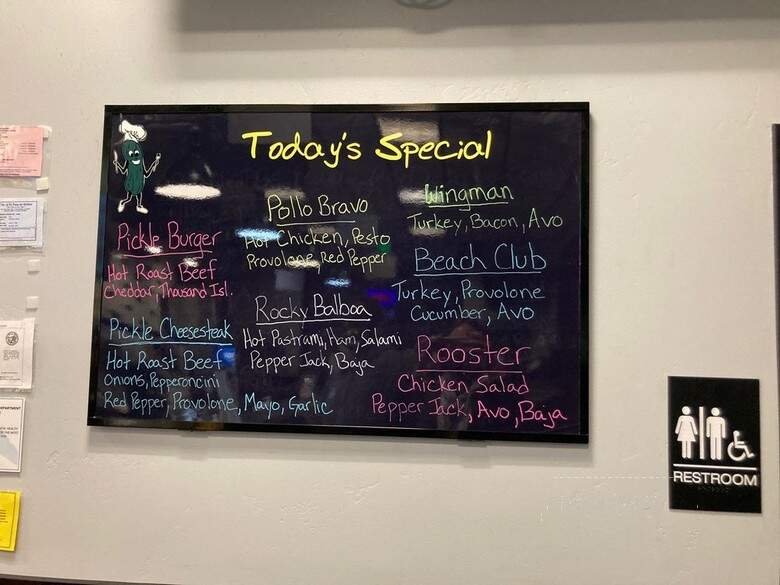 Today's Special
Pickle Burger
Hot Roast Beef
Cheddar, Thousand Isl.
Pickle Cheesesteak
Hot Roast Beef
Onions, Pepperoncini
Red Pepper, Provolone, Mayo, Garlic
Pollo Bravo
Hot Chicken, Pesto
Provolone, Red Pepper
Rocky Balboa
Hot Pastrami, Ham, Salami
Pepper Jack, Baja
Wingman
Turkey, Bacon, Avo
Beach Club
Turkey, Provolone
Cucumber, Avo
Rooster
Chicken Salad
Pepper Jack, Avo, Baja
RESTROOM